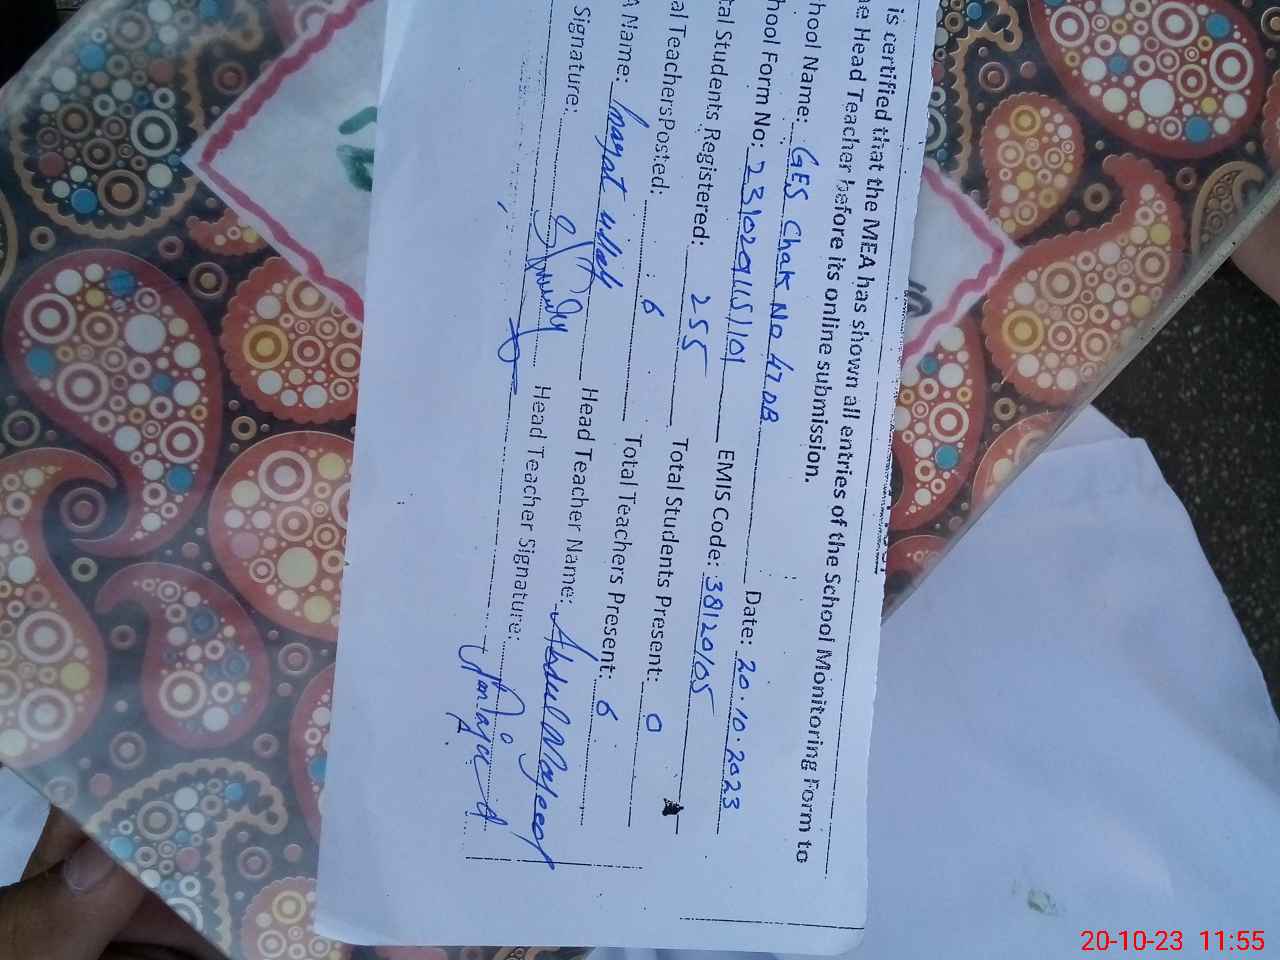 is certified that the MEA has shown all entries of the School Monitoring Form to
e Head Teacher before its online submission.
hool Name: GES Chak No 47 DB Date: 20.10.2023
hool Form No: 231029115101 EMIS Code: 38120105
tal Students Registered: 255 Total Students Present: 0
al TeachersPosted: 6 Total Teachers Present: 6
A Name: Inayat ullah Head Teacher Name: Abdul Majeed
Signature: Head Teacher Signature:
20-10-23 11:55